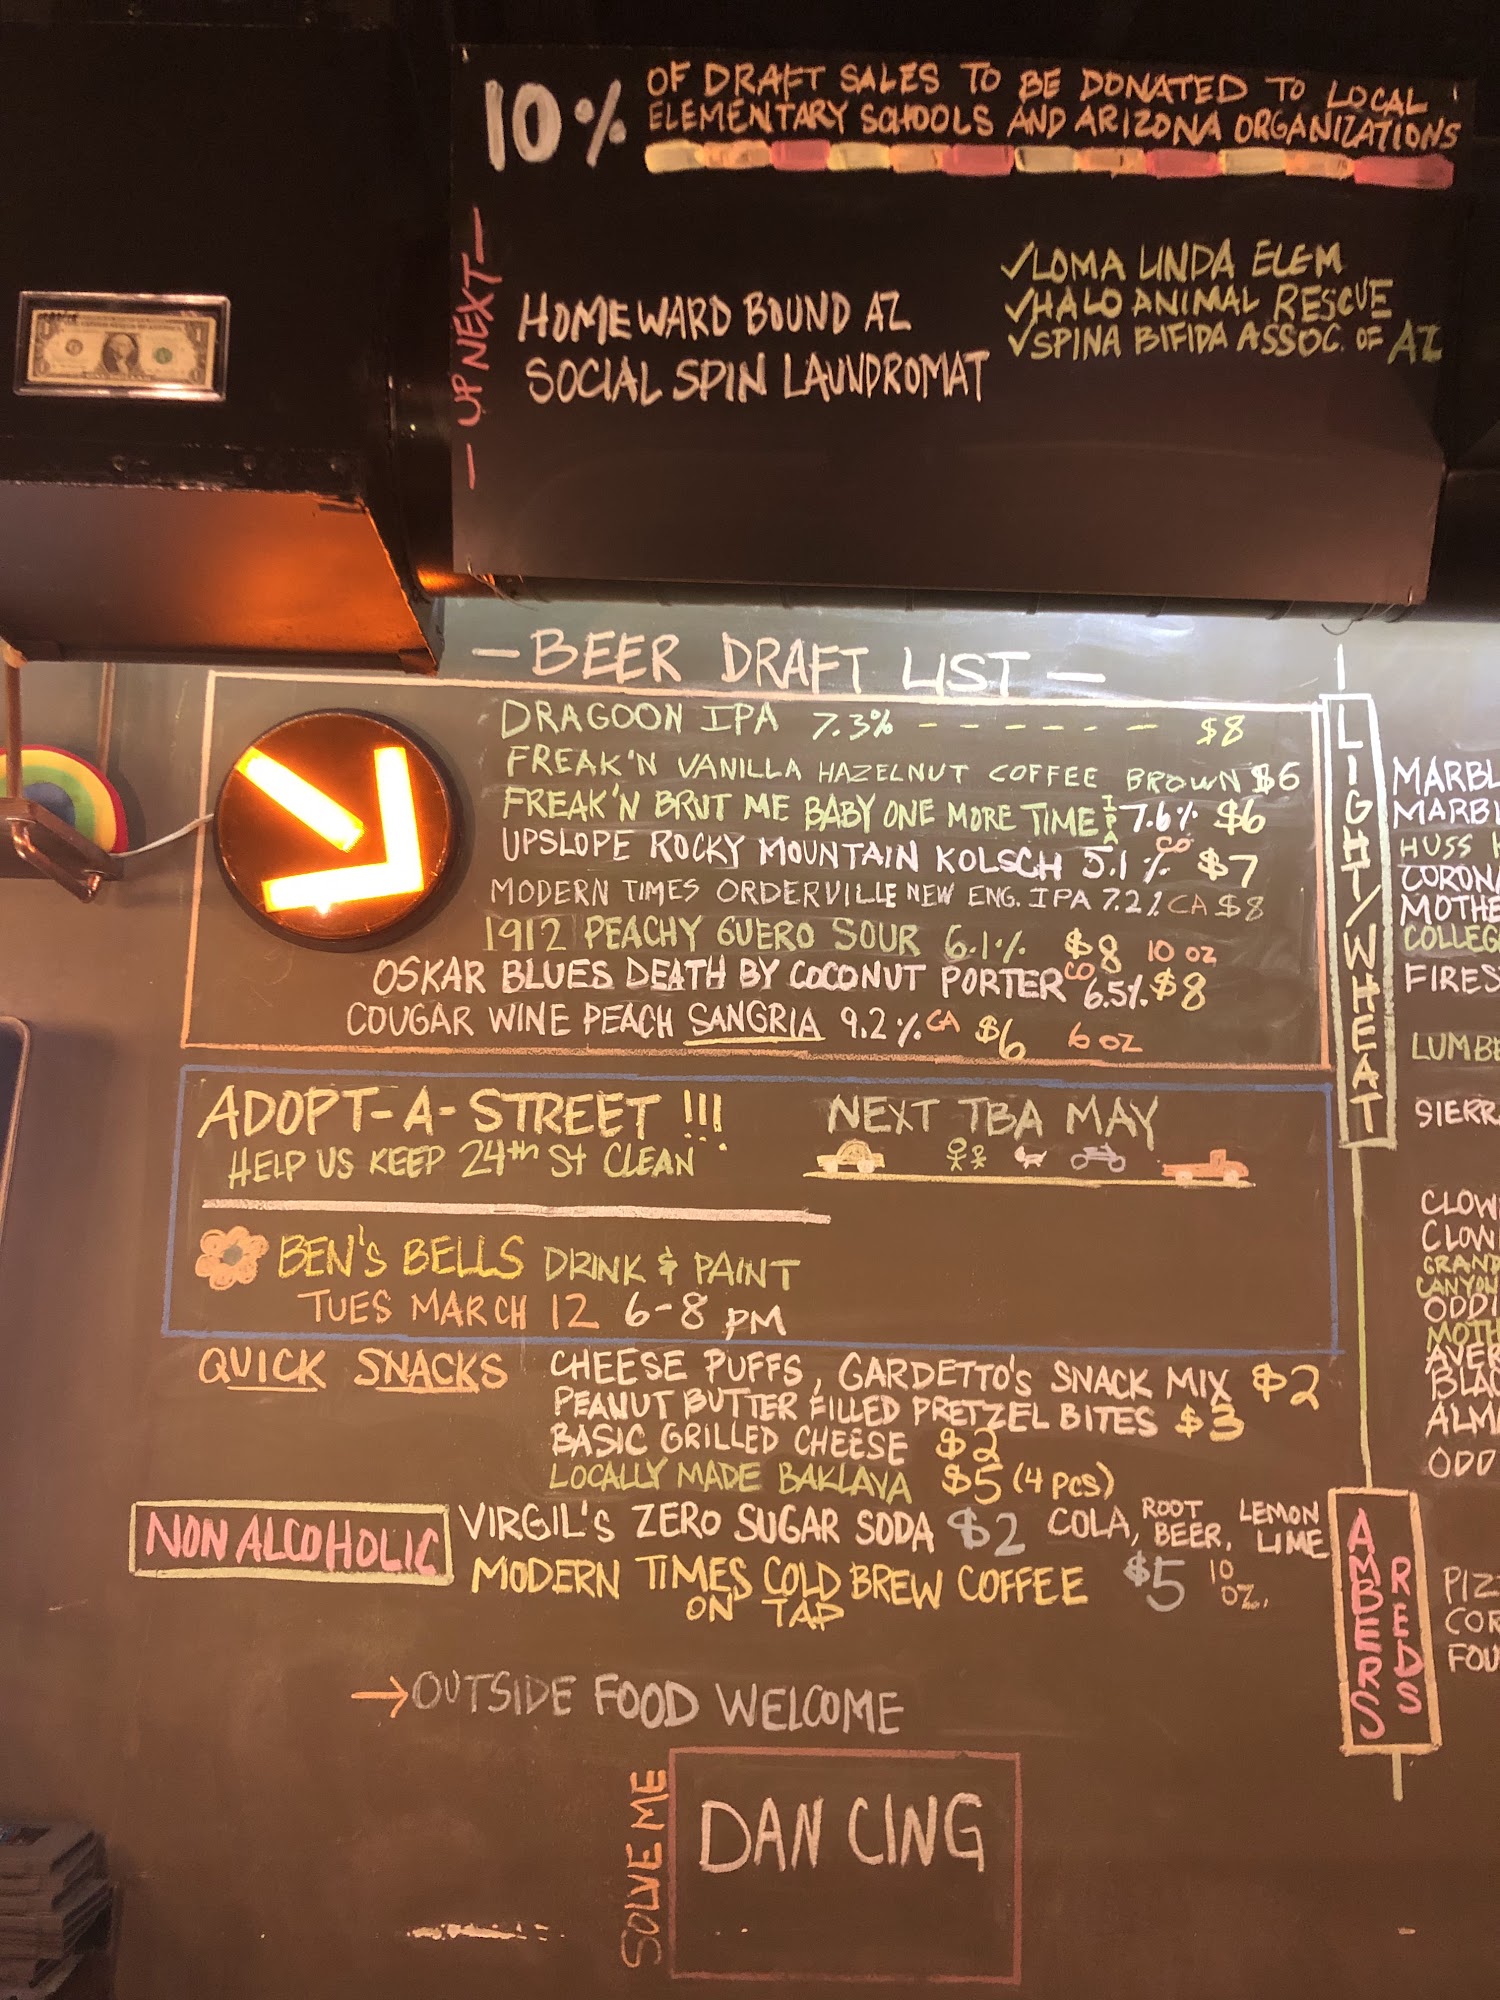 10% OF DRAFT SALES TO BE DONATED TO LOCAL
ELEMENTARY SCHOOLS AND ARIZONA ORGANIZATIONS
— UP NEXT —
HOMEWARD BOUND AZ
SOCIAL SPIN LAUNDROMAT
✓LOMA LINDA ELEM
✓HALO ANIMAL RESCUE
✓SPINA BIFIDA ASSOC. OF AZ
— BEER DRAFT LIST —
DRAGOON IPA 7.3% - - - - - - $8
FREAK'N VANILLA HAZELNUT COFFEE BROWN $6
FREAK'N BRUT ME BABY ONE MORE TIME IPA 7.6% $6
UPSLOPE ROCKY MOUNTAIN KOLSCH 5.1% CO $7
MODERN TIMES ORDERVILLE NEW ENG. IPA 7.2% CA $8
1912 PEACHY GUERO SOUR 6.1% $8 10 OZ
OSKAR BLUES DEATH BY COCONUT PORTER CO 6.5% $8
COUGAR WINE PEACH SANGRIA 9.2% CA $6 6 OZ
ADOPT-A-STREET !!!
HELP US KEEP 24th St CLEAN
NEXT TBA MAY
BEN'S BELLS DRINK & PAINT
TUES MARCH 12 6-8 PM
QUICK SNACKS
CHEESE PUFFS, GARDETTO'S SNACK MIX $2
PEANUT BUTTER FILLED PRETZEL BITES $3
BASIC GRILLED CHEESE $2
LOCALLY MADE BAKLAVA $5 (4 PCS)
NON ALCOHOLIC
VIRGIL'S ZERO SUGAR SODA $2 COLA, ROOT BEER, LEMON LIME
MODERN TIMES COLD BREW COFFEE $5 10 OZ.
ON TAP
→OUTSIDE FOOD WELCOME
SOLVE ME
DAN CING
LIGHT/WHEAT
MARBL
MARBL
HUSS
CORONA
MOTHE
COLLEG
FIRES
LUMBE
SIERR
CLOW
CLOW
GRAND
CANYON
ODDI
MOTH
AVER
BLAC
ALMA
ODD
AMBERS
REDS
PIZ
COR
FOU